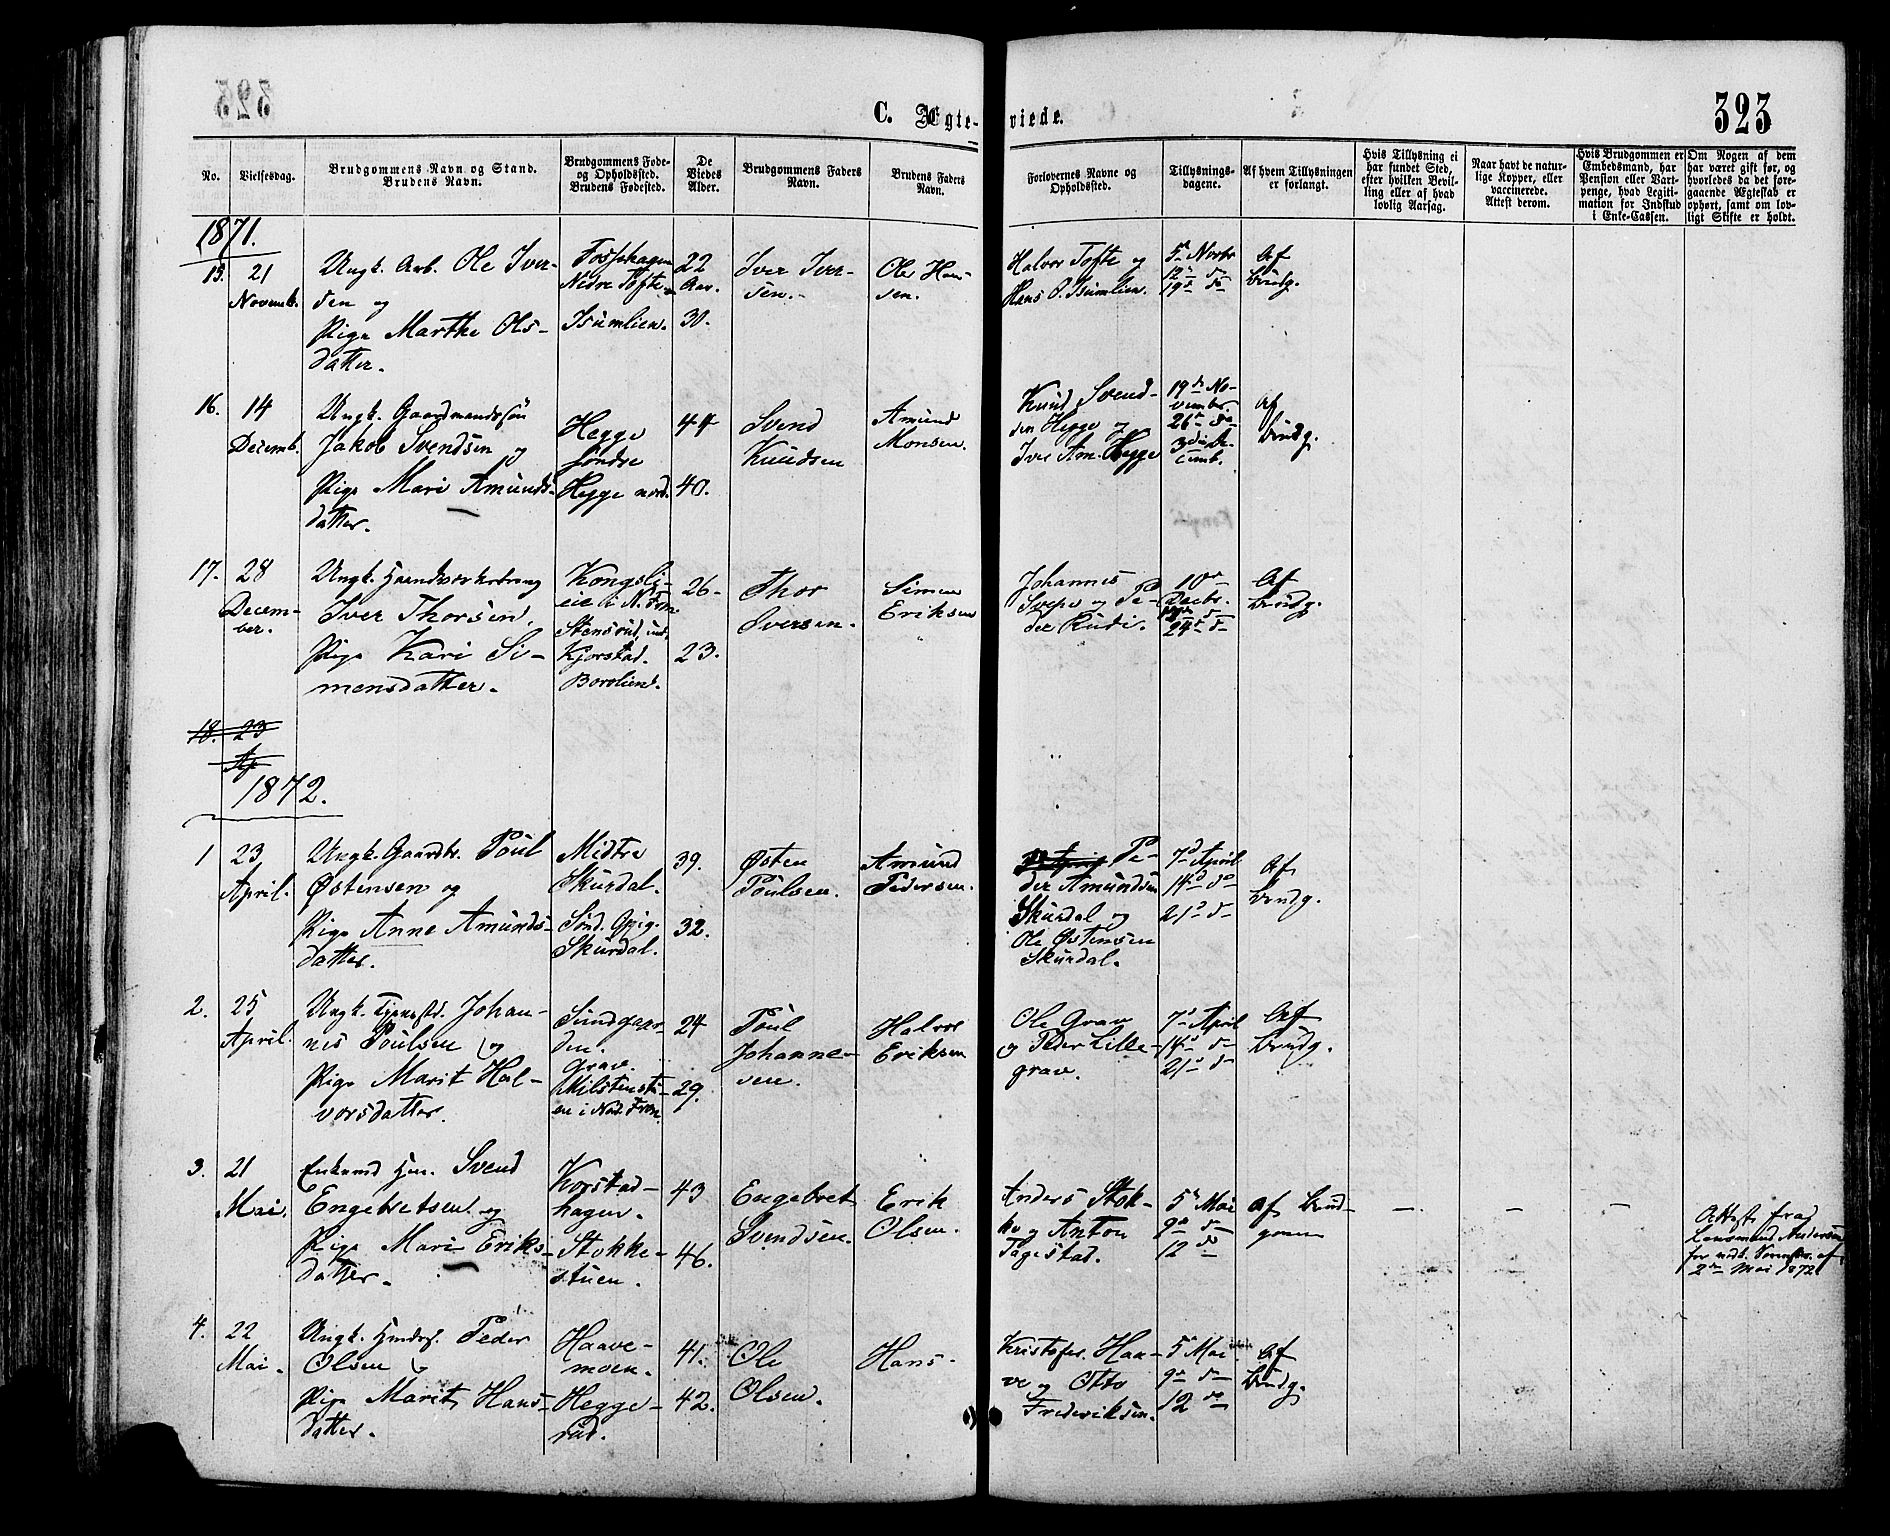 323
C. Ægte-
viede.
323
No.
Vielsesdag.
Brudgommens Navn og Stand.
Brudens Navn.
Brudgommens Føde-
og Opholdssted.
Brudens Fødested.
De
Viedes
Alder.
Brudgommens Faders
Navn.
Brudens Faders
Navn.
Forlovernes Navne og
Opholdssted.
Tillysnings-
dagene.
Af hvem Tillysningen
er forlangt.
Hvis Tillysning ei
har fundet Sted,
efter hvilken Bevil-
ling eller af hvad
lovlig Aarsag.
Naar havt de natur-
lige Kopper, eller
vaccinerede.
Attest derom.
Hvis Brudgommen er
Embedsmand, har
Pension eller Vart-
penge, hvad Legiti-
mation for Indskud
i Enke-Cassen.
Om Nogen af dem
har været gift før, og
hvorledes da det fore-
gaaende Ægteskab er
ophørt, samt om lov-
ligt Skifte er holdt.
1871.
15. 21
Novemb.
Ungk. Arb. Ole Iver-
sen og
Pige Marthe Ols-
datter.
Nedre Tofte
Isumlien.
22
Aar.
30.
Iver Iver-
sen.
Ole Han-
sen.
Halvor Tofte og
Hans O. Isumlien.
5te Novbr
12te do
19de do
Af
Brudg.
16. 14
Decemb.
Ungk. Gaardmandssøn
Jakob Svendsen og
Pige Mari Amunds-
datter.
Hegge
søndre
Hegge nord.
44
40.
Svend
Knudsen
Amund
Monsen.
Knud Svend-
sen Hegge og
Iver Am. Hegge
19de No-
vember.
26de do
3die De-
cemb.
Af
Brudg.
17. 28
Decem-
ber.
Iver Thorsen,
Pige Kari Si-
mensdatter.
Kongsli-
eie i N. Fron
Stensrud, ind.
Kjorstad.
Borolien.
26.
23.
Thor
Iversen.
Simen
Eriksen
Johannes
og Pe-
der Rudi.
10de
Decbr.
24de do
Af
Brudg.
18. 23
Ap
1872.
1 23
April.
Ungk. Gaardbr. Poul
Østensen og
Pige Anne Amunds-
datter.
Midtre
Skurdal.
Sønd.
Skurdal.
39.
32.
Østen
Poulsen.
Amund
Pedersen.
Pe-
der Amundsen
Skurdal og
Ole Østensen
Skurdal.
7de April
14de do
21de do
Af
Brudg.
2. 25
April.
Ungk. Tjenestk. Johan-
nes Poulsen og
Pige Marit Hal-
vorsdatter.
Sundgaar-
den.
Grav.
Milstenstu-
en i Nod. Fron
24
29.
Poul
Johanne-
sen.
Halvor
Eriksen
Ole Grav
og Peder Lille-
grav.
7de April
14de do
21de do
Af
Brudg.
3. 21
Mai.
Enkemd Hm. Svend
Engebretsen og
Pige Mari Eriks-
datter.
Korstad-
hagen.
Stokke-
stuen.
43
46.
Engebret
Svendsen.
Erik
Olsen.
Anders Stok-
ke og Anton
Tagestad.
5te Mai
9de do
12 do
af Brud-
gommen
—
—
—
Attest fra
Lensmand Andersen
2den Mai 1872
4. 22
Mai.
Ungk. Peder
Olsen og
Pige Marit Hans-
datter.
Haave-
moen.
Hegge-
rud.
41.
42.
Ole
Olsen.
Hans
Kristofer Haa-
ve og Otto
Frederiksen.
5te Mai
9de do
12 do
Af
Brudg.